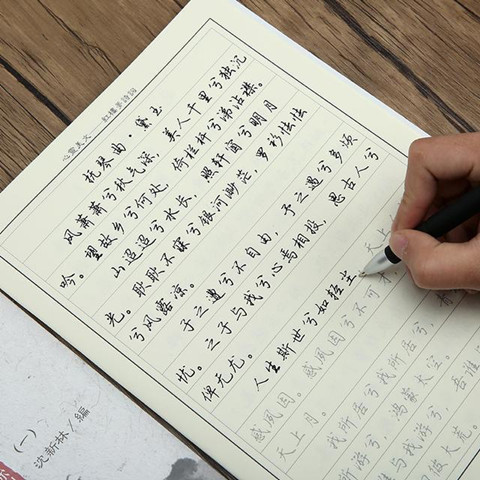 心灵美文 红楼梦诗词
抚琴曲·黛玉
风萧萧兮秋气深，美人千里兮独沉
吟。望故乡兮何处，倚栏杆兮涕沾襟。
山迢迢兮水长，照轩窗兮明月
光。耿耿不寐兮银河渺茫，罗衫怯怯
兮风露凉。
子之遭兮不自由，予之遇兮多烦
忧。之子与我兮心焉相投，思古人兮
俾无尤。
人生斯世兮如轻尘，天上
感夙因。感夙因兮不可
天上月。
我所居兮，青
我所游兮，鸿蒙太空。
与我游兮，吾谁
归彼大荒。
(一)
沈新林/编